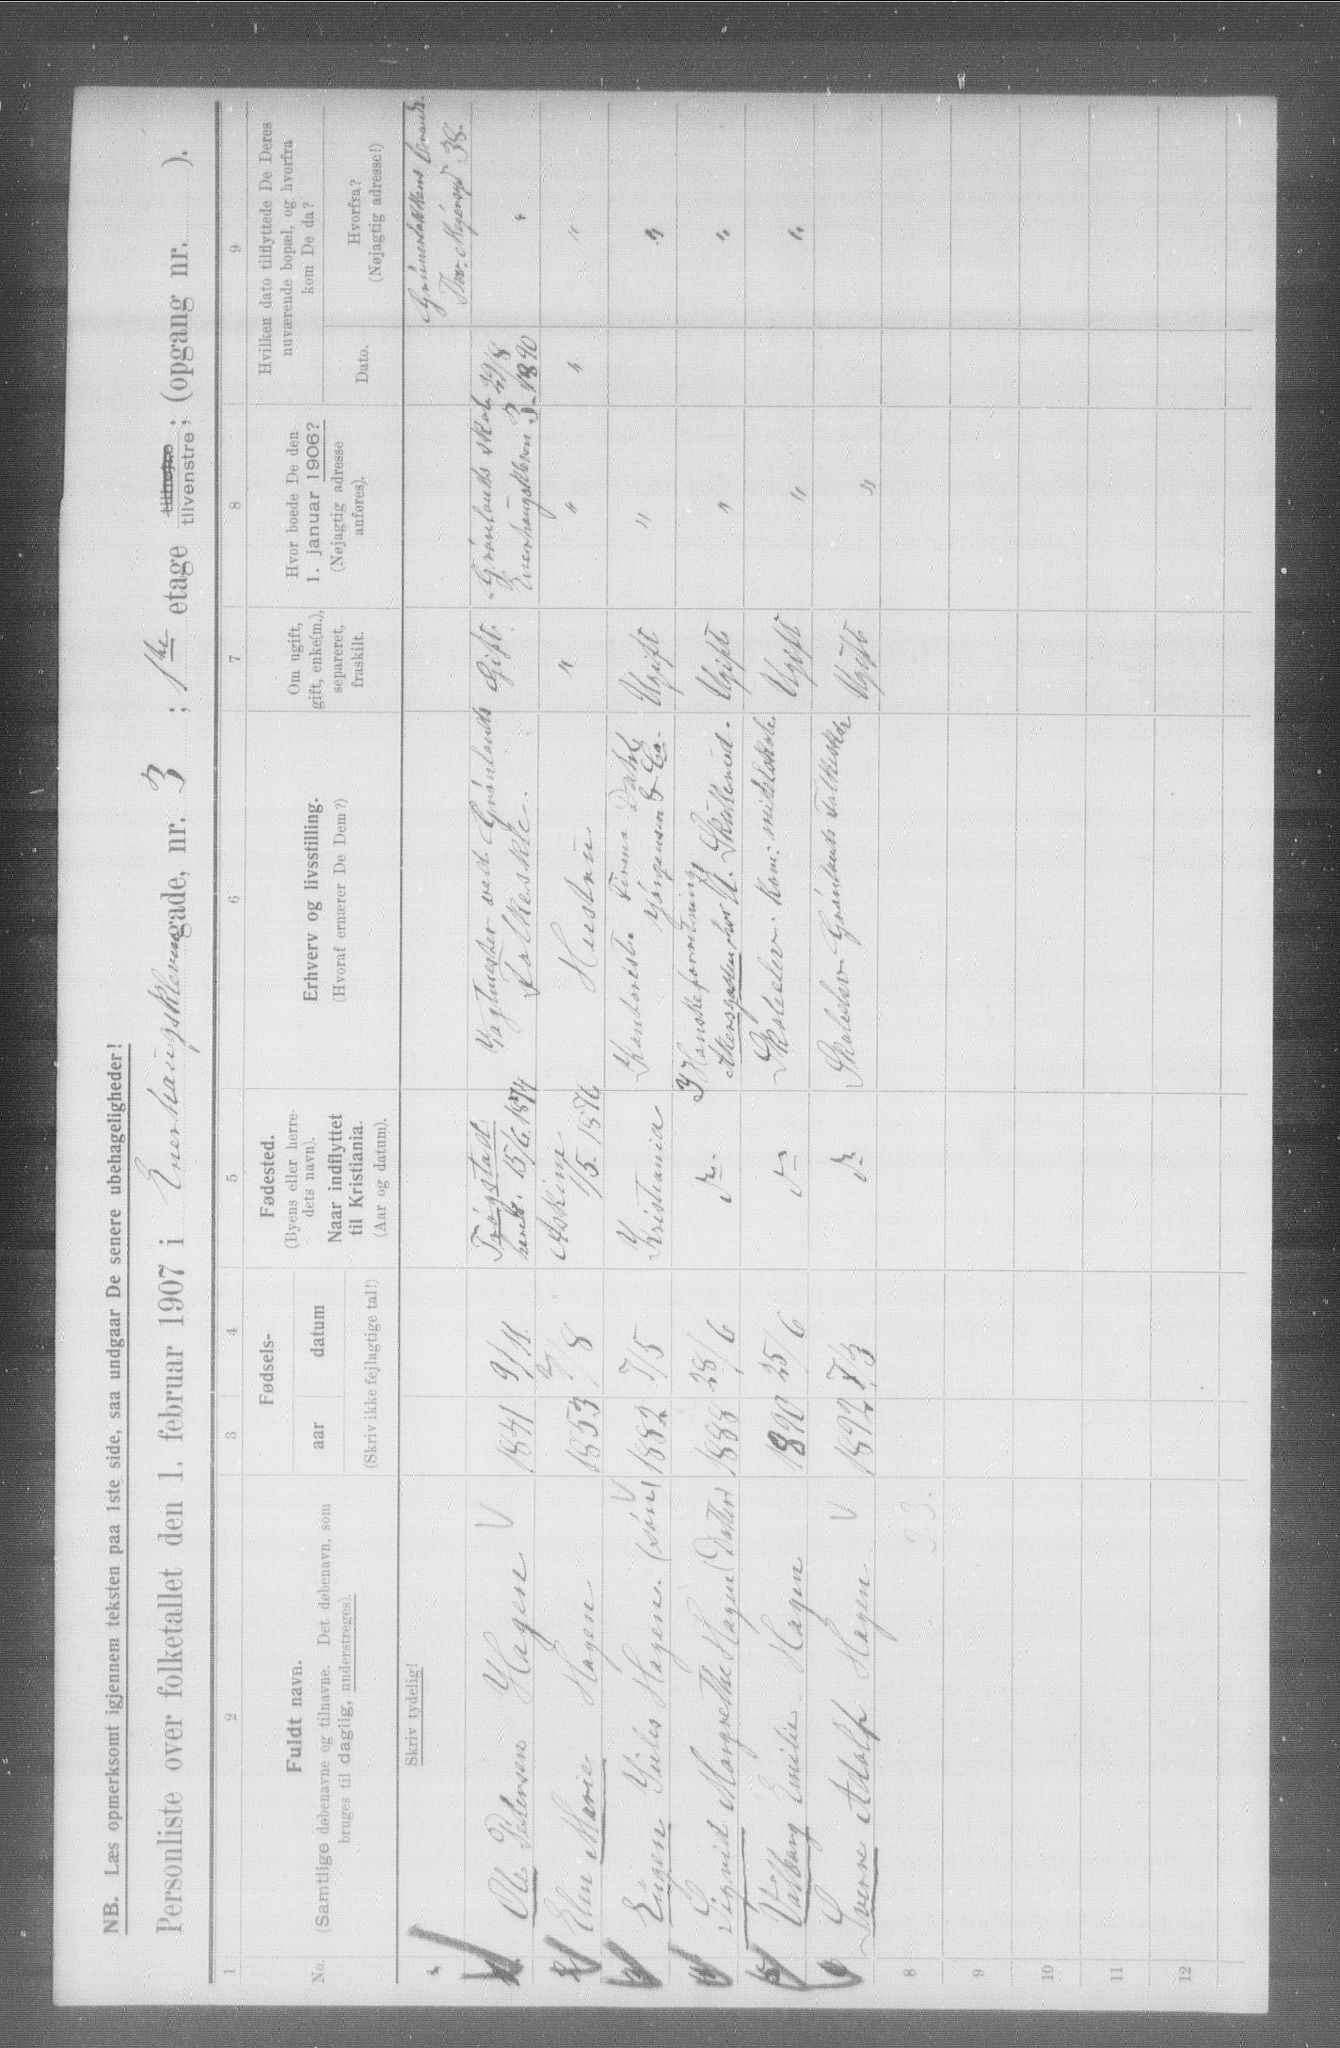 NB. Læs opmerksomt igjennem teksten paa 1ste side, saa undgaar De senere ubehageligheder!
Personliste over folketallet den 1. februar 1907 i Enerhaugskleven gade, nr. 3 ; 1ste etage tilhøjre tilvenstre ; (opgang nr. ).
1 2 3 4 5 6 7 8 9
No.
Fuldt navn.
(Samtlige døbenavne og tilnavne. Det døbenavn, som
bruges til daglig, understreges).
Fødsels-
aar datum
(Skriv ikke fejlagtige tal!)
Fødested.
(Byens eller herre-
dets navn).
Naar indflyttet
til Kristiania.
(Aar og datum).
Erhverv og livsstilling.
(Hvoraf ernærer De Dem?)
Om ugift,
gift, enke(m.),
separeret,
fraskilt.
Hvor boede De den
1. januar 1906?
(Nøjagtig adresse
anføres).
Hvilken dato tilflyttede De Deres
nuværende bopæl, og hvorfra
kom De da?
Dato.
Hvorfra?
(Nøjagtig adresse!)
Skriv tydelig!
Thv. Meyersgd 38.
1 Ole Pedersen Hagen 1841 9/11 Trøgstad Vagtmester ved Grønlands Gift. Grønlands skole 29/8 "
hered. 15/6. 1874 Folkeskole. Enerhaugskleven 3 - 1890
2 Elen Marie Hagen 1853 /8 Askim Hustru " " " "
1/5. 1876
3 Eugen Hagen. (søn) 1882 7/5 Kristiania Kontorist. Firma Dahl Ugift " "
Jørgensen & Co.
4 Sigrid Margrethe Hagen (Datter) 1888 28/6 do. I Hanskeforretning Ugift " "
Akersgaden hos
5 Valborg Emilie Hagen 1890 25/6 do Skoleelev. Kom: middelskole Ugift " "
6 Sverre Adolf Hagen 1892 7/3 do Skoleelev Grønlands Folkeskole Ugift "
3.3.
8
9
10
11
12